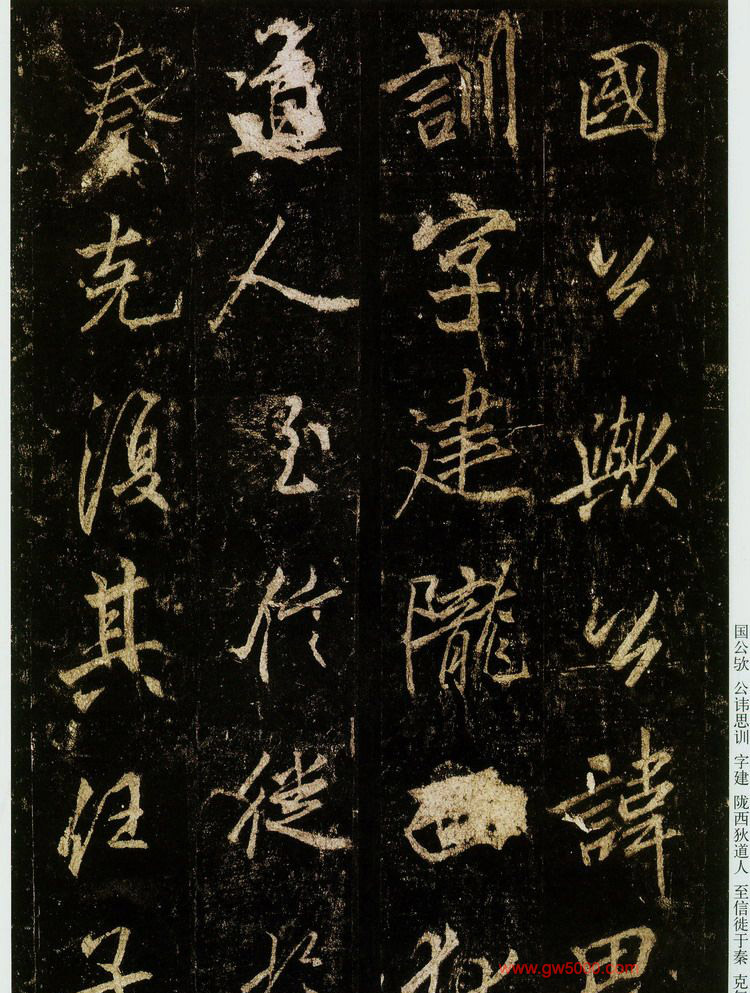 國公歟公諱思
訓字建隴西狄
道人至信徙於
秦克復其任子
国公欤 公讳思训 字建 陇西狄道人 至信徙于秦 克复
www.gw5000.com